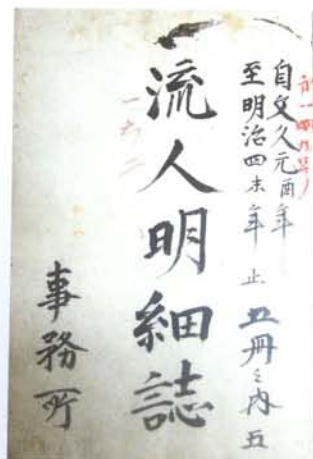 自文久元酉年
至明治四未年 止 五冊之内五
流人明細誌
事務所